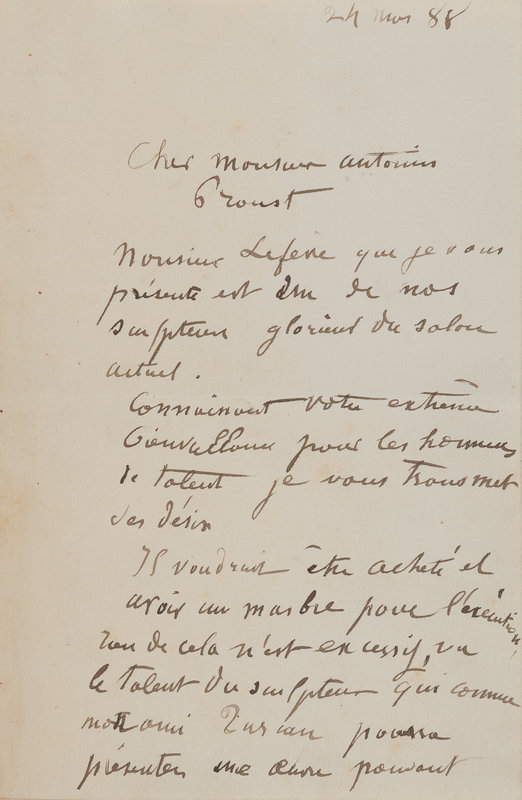 24 mai 88
Cher monsieur antonin
Proust
Monsieur Lefevre que je vous
présente est un de nos
sculpteurs glorieux du salon
actuel.
Connaissant votre extrême
bienveillance pour les hommes
de talent je vous transmet
ses désirs
Il voudrait être acheté et
avoir un marbre pour l'exécution,
rien de cela n'est excessif, vu
le talent du sculpteur qui comme
mon ami Turcan pourra
présenter une œuvre pouvant